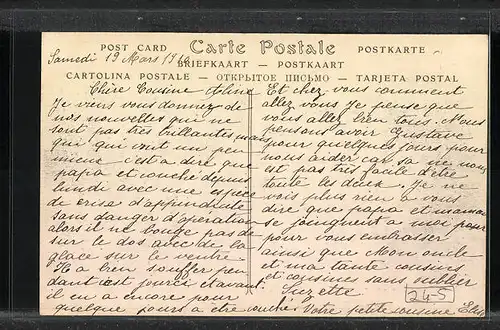 POST CARD Carte Postale POSTKARTE
BRIEFKAART — POSTKAART
CARTOLINA POSTALE - ОТКРЫТОЕ ПИСЬМО - TARJETA POSTAL
Samedi 19 Mars
Chère Cousine Aline
Je viens vous donnez de
nos nouvelles qui ne
sont pas très brillantes mais
qui vont un peu
mieux c'est a dire que
papa et couché depuis
lundi avec une espece
de crise d'appendicite
sans danger d'operation
alors il ne bouge pas de
sur le dos avec de la
glace sur le ventre
Il a bien souffer pen
dant c'est jours et avant
il en a encore pour
quelque jours a être couché
Et chez vous comment
allez vous Je pense que
vous allez bien tous. Nous
pensons avoir Gustave
pour quelques jours pour
nous aider car sa ne nous
est pas très facile d'être
toute les deux. Je ne
vois plus rien a vous
dire que papa et maman
se joingnent a moi pour
pour vous embrasser
ainsi que Mon oncle
et ma tante cousins
et cousines sans oublier
Suzette
Votre petite cousine
245